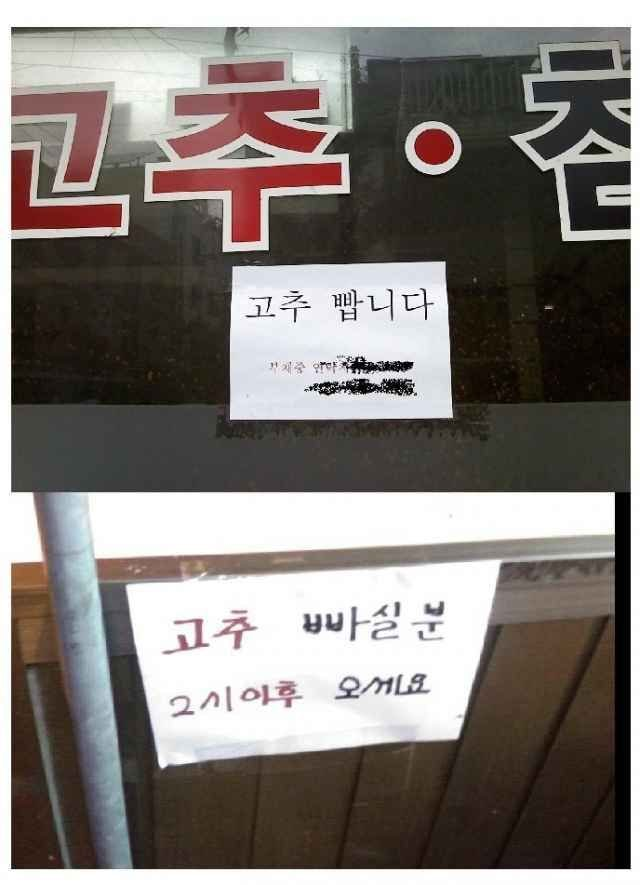 고추 · 참
고추 빱니다
부재중 연락처
고추 빠실분
2시이후 오세요